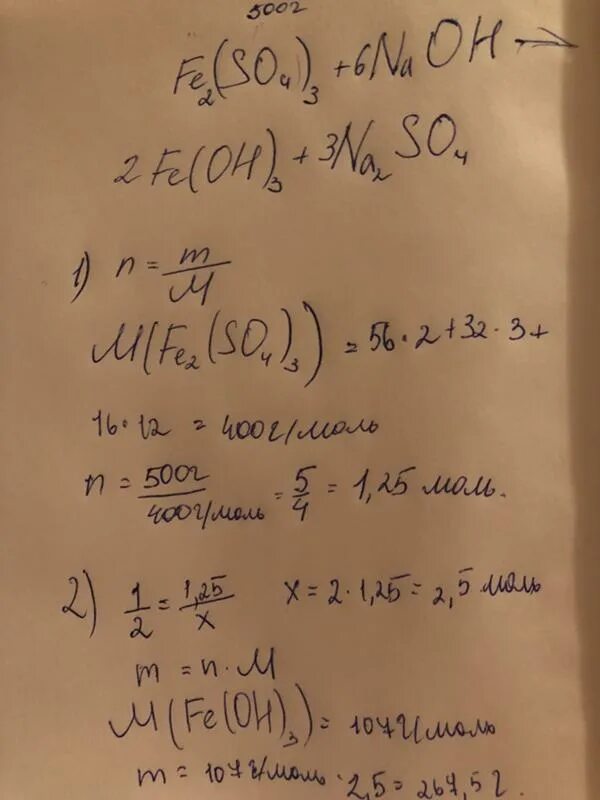 500г
Fe₂(SO₄)₃ + 6NaOH →
2Fe(OH)₃ + 3Na₂SO₄
1) n = m/M
M(Fe₂(SO₄)₃) = 56·2+32·3+
16·12 = 400г/моль
n = 500г/400г/моль = 5/4 = 1,25 моль.
2) 1/2 = 1,25/x x = 2·1,25 = 2,5 моль
m = n·M
M(Fe(OH)₃) = 107г/моль
m = 107г/моль · 2,5 = 267,5 г.